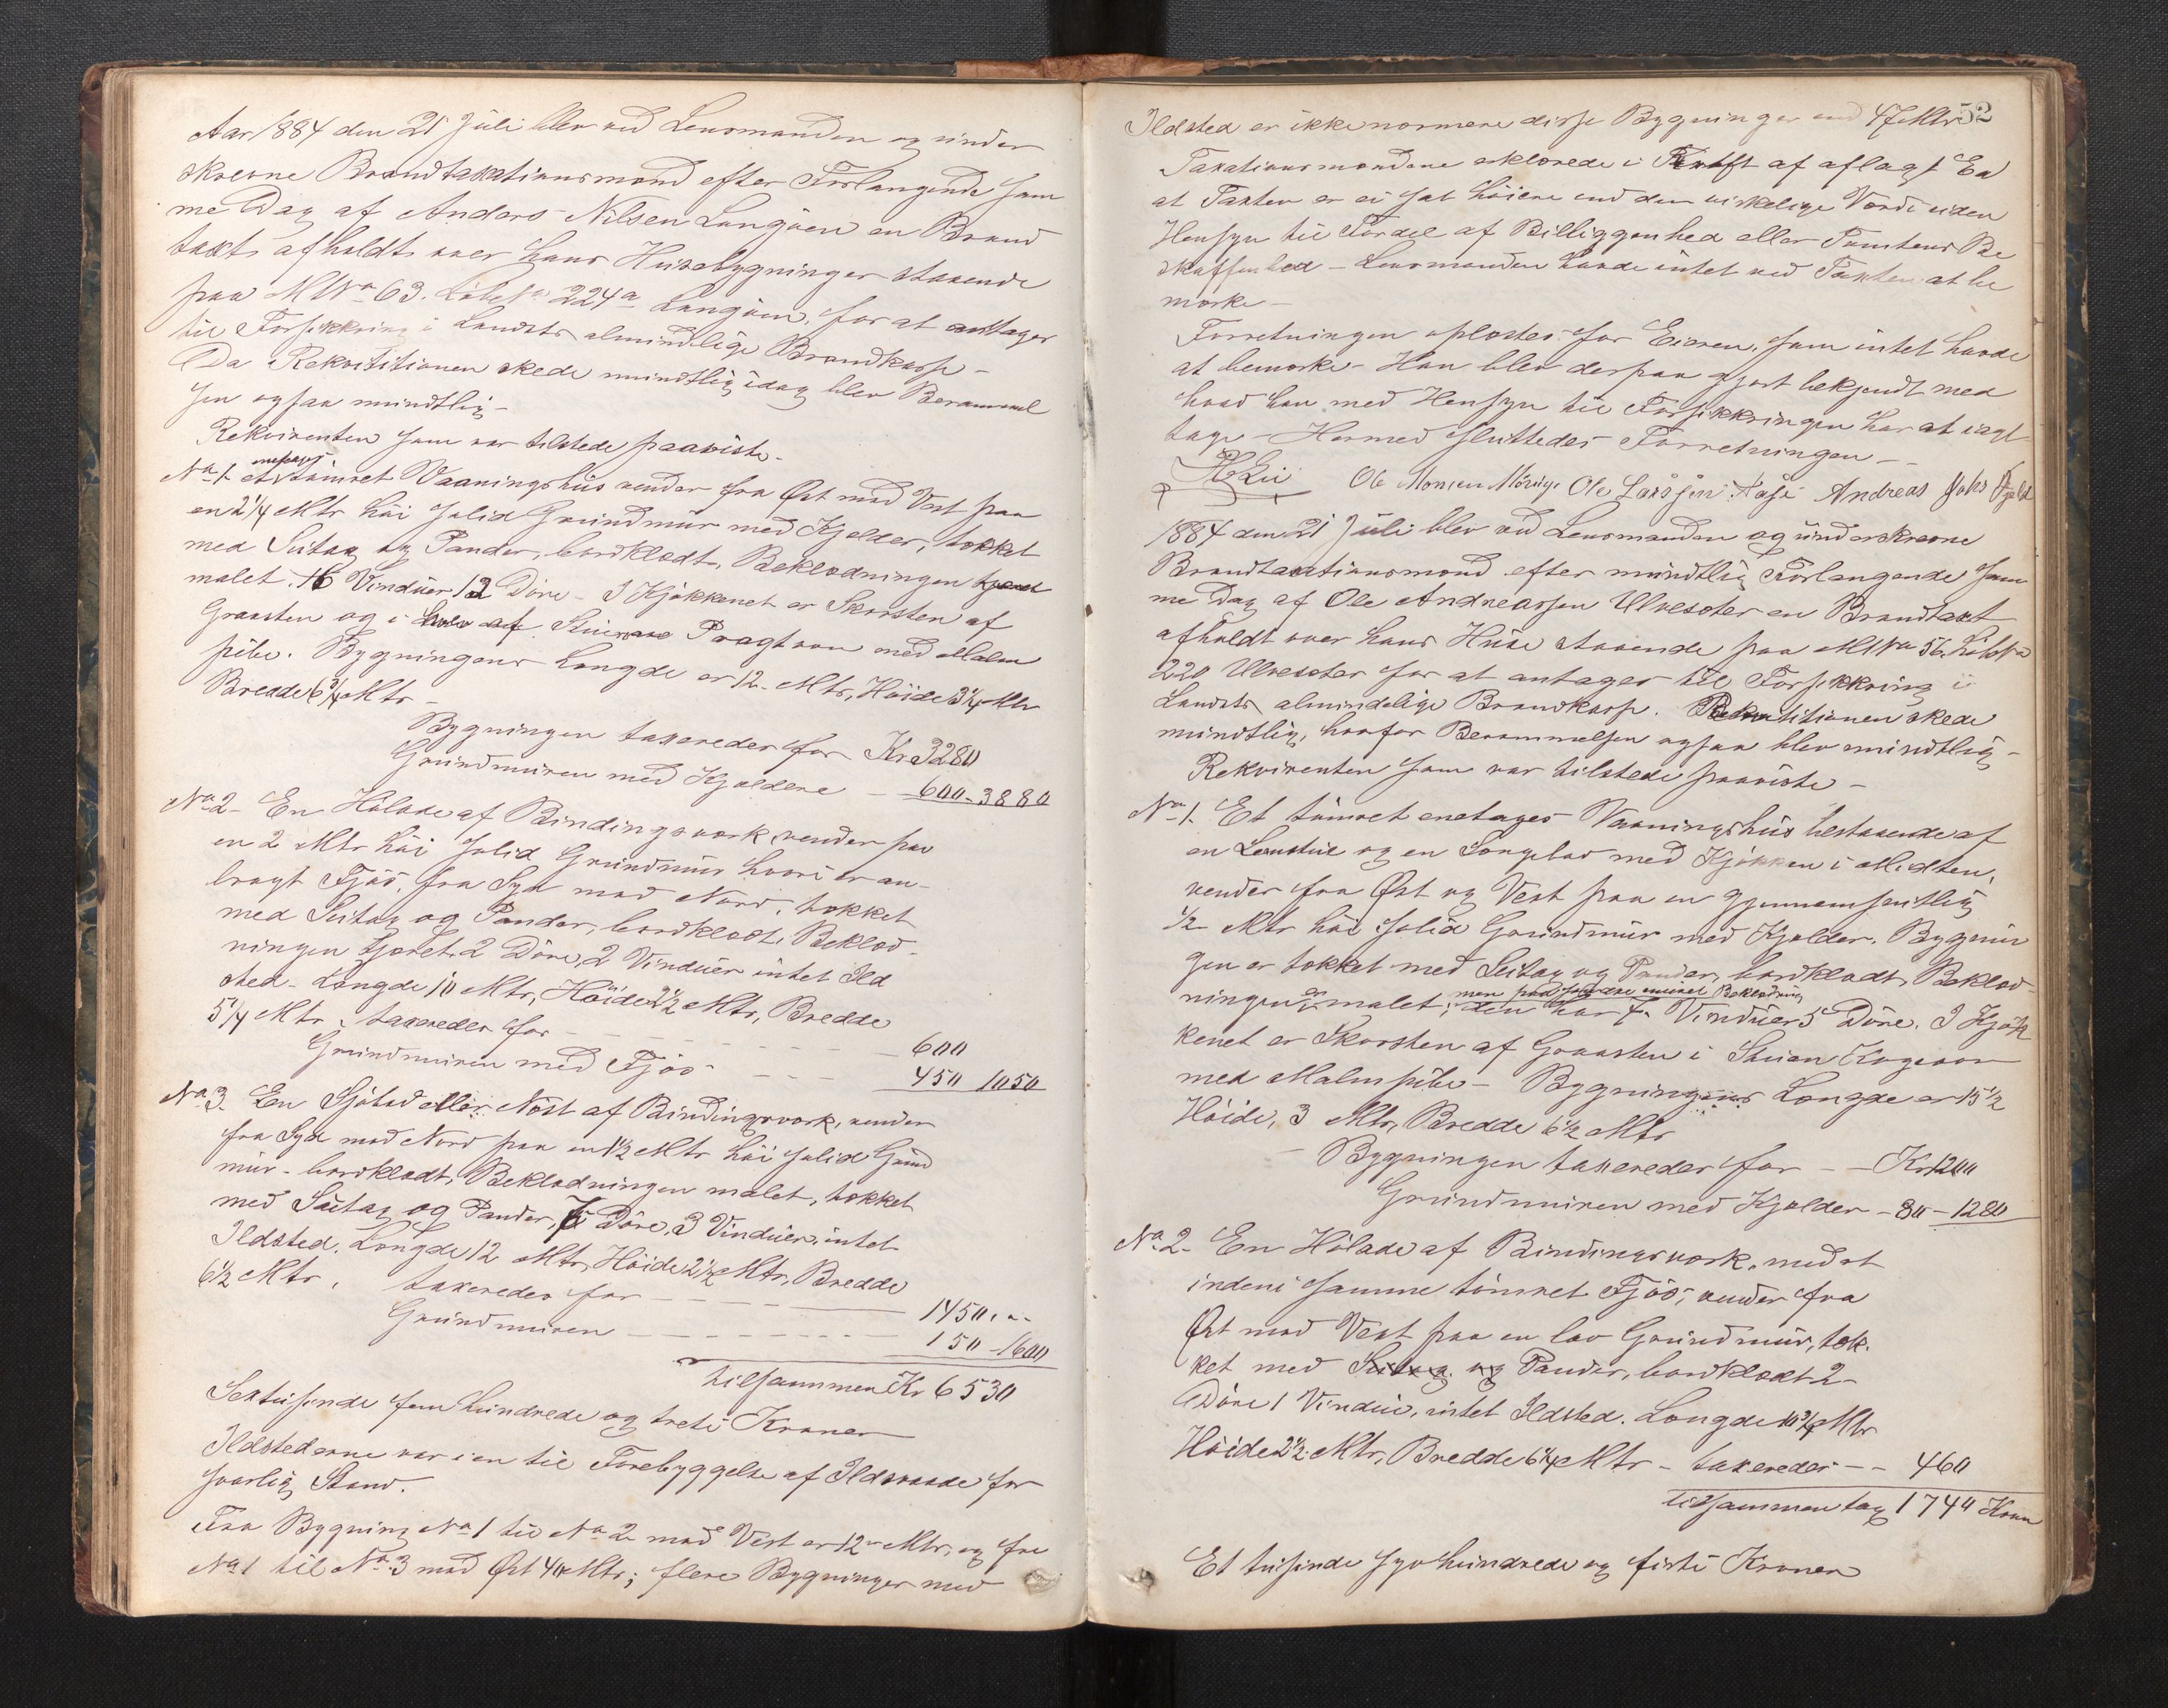 Aar 1884 den 21 Juli blev ved Lensmanden og under
skrevne Brandtaxationsmænd efter Forlangende sam
me Dag af Anders Nilsen Langöen en Brand
taxt afholdt over hans Husebygninger staaende
paa MNo 63. Löbe No 224a Langöen, for at antages
til Forsikkring i Landets almindelige Brandkasse -
Da Rekvisitionen skede mundtlig idag blev Berammel
sen ogsaa mundtlig -
Rekvirenten som var tilstede paaviste -
No 1. et enetages tömret Vaaningshus vender fra Öst mod Vest paa
en 2 1/4 Mtr höi solid Grundmur med Kjelder, tækket
med Sutag og Pander, bordklædt, Beklædningen
malet. 16 Vinduer 12 Döre - I Kjökkenet er Skorsten af
Graasten og i Stuerne Pragtovn med Malm
pibe. Bygningens Længde er 12 Mtr, Höide 3 1/4 Mtr
Bredde 6 3/4 Mtr -
Bygningen taxeredes for Kr 3280
Grundmuren med Kjeldere - 600 - 3880
No 2 - En Hölade af Bindingsværk, vender paa
en 2 Mtr höi solid Grundmur hvori er an-
bragt Fjös, fra Syd mod Nord, tækket
med Sutag og Pander, bordklædt. Beklæd-
ningen tjæret. 2 Döre, 2 Vinduer intet Ild
sted - Længde 10 Mtr, Höide 2 1/2 Mtr, Bredde
5 1/4 Mtr, taxeredes for - - - 600
Grundmuren med Fjös - - - 450 1050
No 3. En Sjöbod eller Nöst af Bindingsværk, vender
fra Syd mod Nord paa en 1 1/2 Mtr höi solid Grund
mur - bordklædt, Beklædningen malet, tækket
med Sutag og Pander, 7 Döre, 3 Vinduer, intet
Ildsted. Længde 12 Mtr, Höide 2 1/2 Mtr, Bredde
6 1/2 Mtr, taxeredes for - - - 1450 "
Grundmuren - - - 150 - 1600
tilsammen Kr 6530
Sextusinde fem hundrede og treti Kroner
Ildstederne var i en til Forebyggelse af Ildsvaade for
svarlig Stand.
Fra Bygning No 1 til No 2 mod Vest er 12 Mtr, og fra
No 1 til No 3 mod Öst 40 Mtr; flere Bygninger med
52
Ildsted er ikke nærmere disse Bygninger end 47 Mtr
Taxationsmændene erklærede i Kraft af aflagt Ed
at Taxten er ei sat höiere end den virkelige Værdi uden
Hensyn til Fordel af Beliggenhed eller Tomtens Be
skaffenhed - Lensmanden havde intet ved Taxten at be
mærke -
Forretningen oplæstes for Eieren, som intet havde
at bemærke - Han blev derpaa gjort bekjendt med
hvad han med Hensyn til Forsikkringen har at iagt
tage - Hermed sluttedes Forretningen -
Ole Monsen Ole Larssen Andreas Johs
1884 den 21 Juli blev ved Lensmanden og underskrevne
Brandtaxationsmænd efter mundtlig Forlangende sam
me Dag af Ole Andreassen Ulvesæter en Brandtaxt
afholdt over hans Huse staaende paa MNo 56. Löb No
220 Ulvesæter for at antages til Forsikkring i
Landets almindelige Brandkasse. Rekvisitionen skede
mundtlig, hvorfor Berammelsen ogsaa blev mundtlig -
Rekvirenten som var tilstede paaviste -
No 1. Et tömret enetages Vaaningshus bestaaende af
en Lemstue og en Sengebod med Kjökken i Midten,
vender fra Öst og Vest paa en gjennemsnitlig
1/2 Mtr höi solid Grundmur med Kjelder. Bygnin
gen er tækket med Sutag og Pander, bordklædt, Beklæd-
ningen er malet, men paa söndre umalet Beklædning
den har 7 Vinduer 5 Döre. I Kjök
kenet er Skorsten af Graasten i Stuen Kogeovn
med Malmpibe - Bygningens Længde er 15 1/2
Höide, 3 Mtr, Bredde 6 1/2 Mtr
- Bygningen taxeredes for - - Kr 1200
Grundmuren med Kjelder - 80 - 1280
No 2 - En Hölade af Bindingsværk, med et
indeni samme tömret Fjös, vender fra
Öst mod Vest paa en lav Grundmur, tæk-
ket med Sutag og Pander, bordklædt 2
Döre 1 Vindue, intet Ildsted. Længde 10 3/4 Mtr
Höide 2 1/2 Mtr, Bredde 6 1/4 Mtr - taxeredes - - 460
tilsammen tax 1740 Kron
Et tusinde syv hundrede og firti Kroner